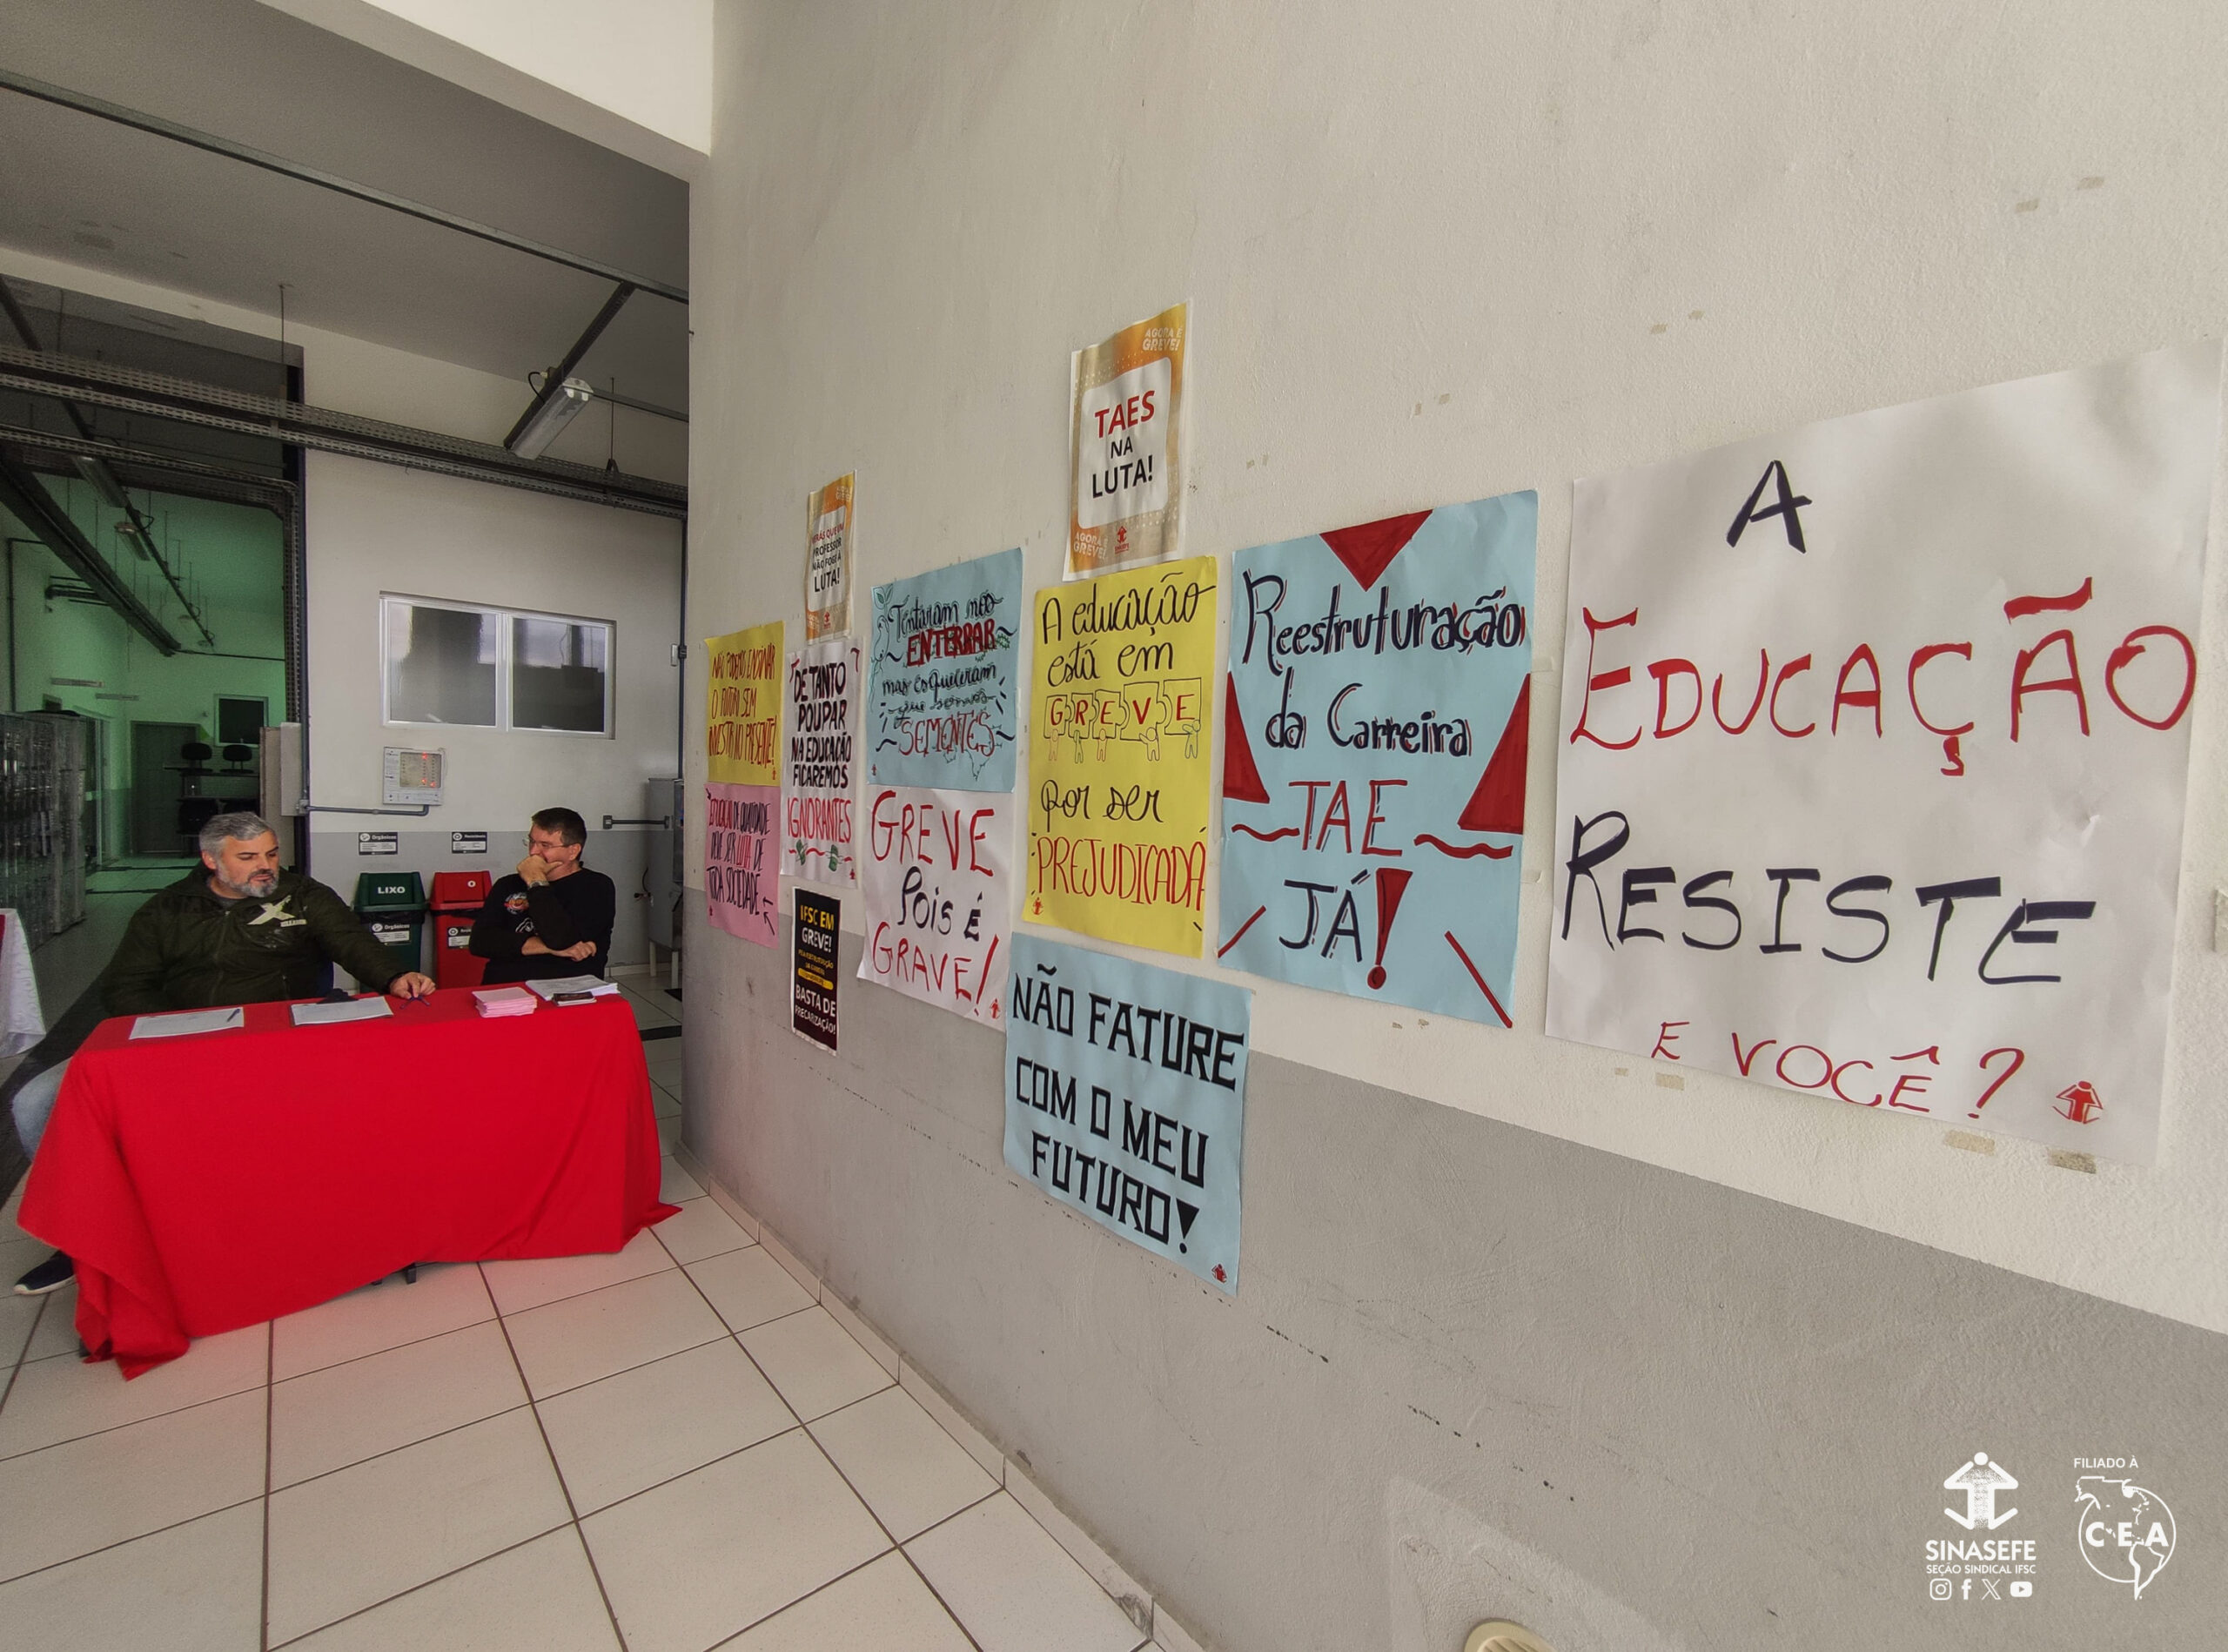 LIXO
Orgânicos
Orgânicos
NÃO PODEMOS ENSINAR
O FUTURO SEM
INVESTIR NO PRESENTE!
EDUCAÇÃO DE QUALIDADE
DEVE SER LUTA DE
TODA SOCIEDADE
VERÁS QUE UM
PROFESSOR
NÃO FOGE À
LUTA!
DE TANTO
POUPAR
NA EDUCAÇÃO
FICAREMOS
IGNORANTES
IFSC EM
GREVE!
BASTA DE
PRECARIZAÇÃO!
Tentaram nos
ENTERRAR
mas esqueceram
que somos
SEMENTES
GREVE
Pois É
GRAVE!
AGORA É
GREVE!
TAES
NA
LUTA!
AGORA É
GREVE!
SINASEFE
A educação
está em
GREVE
por ser
PREJUDICADA
NÃO FATURE
COM O MEU
FUTURO!
Reestruturação
da Carreira
TAE
JÁ!
A
EDUCAÇÃO
RESISTE
E VOCÊ?
SINASEFE
SEÇÃO SINDICAL IFSC
FILIADO À
C.E.A